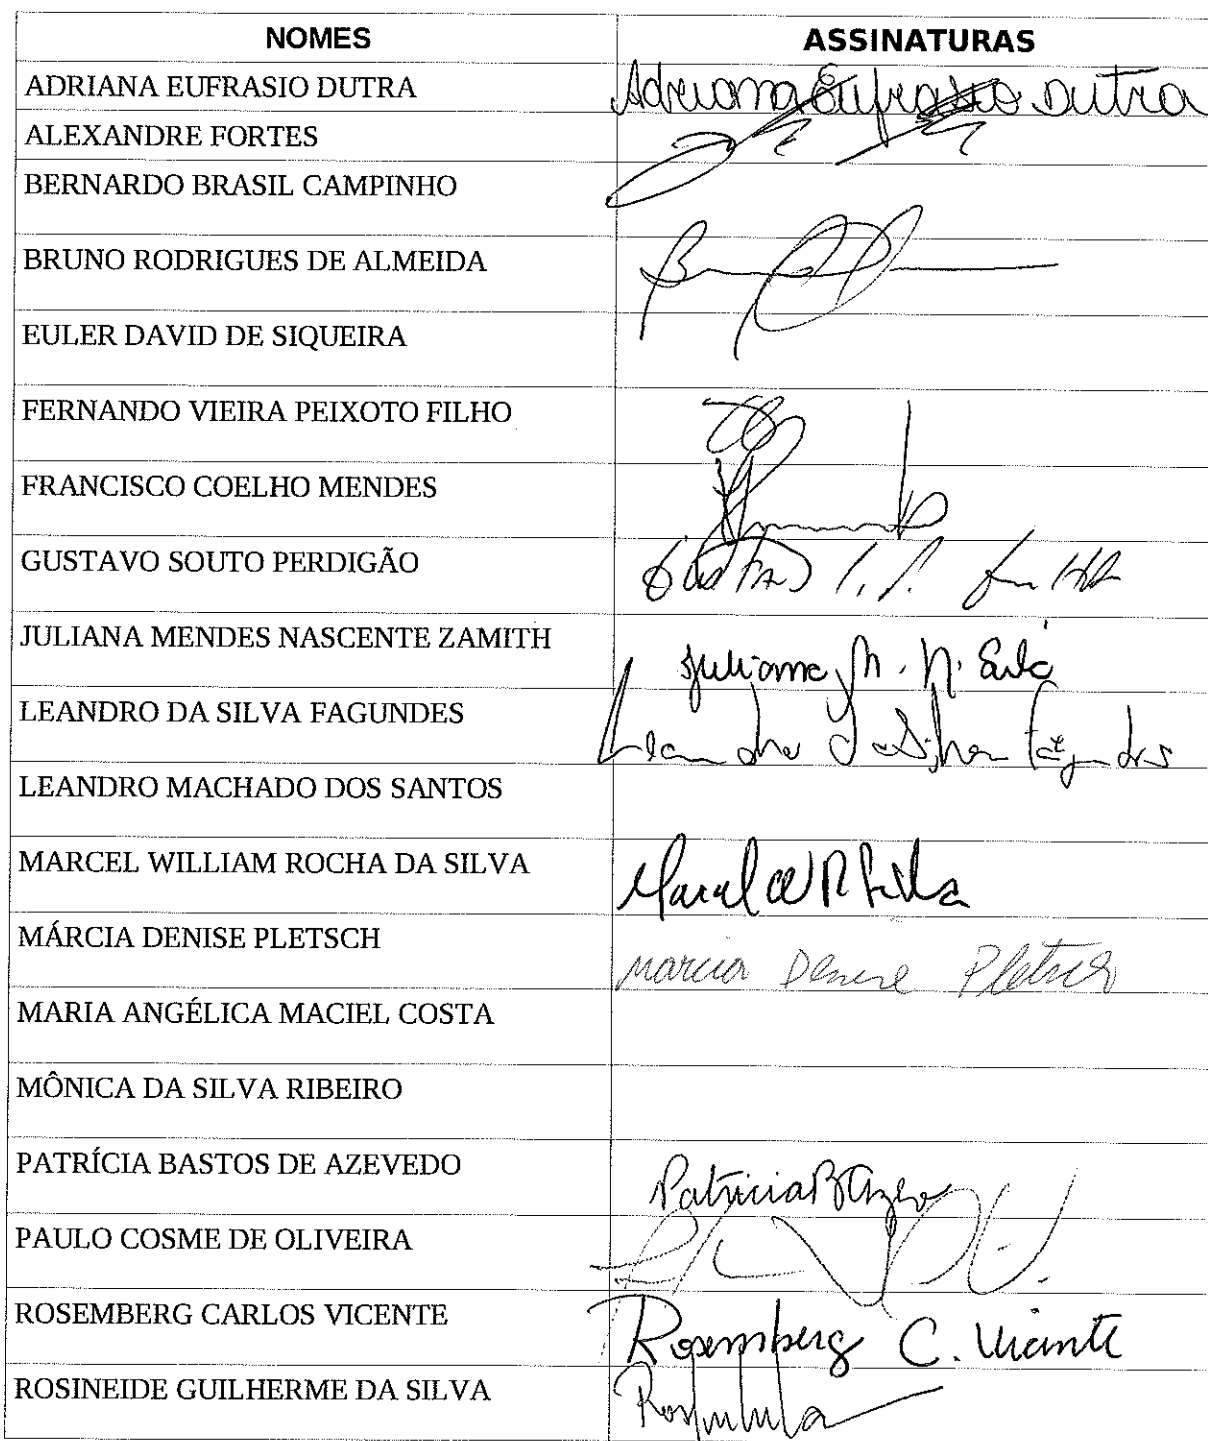 NOMES ASSINATURAS
ADRIANA EUFRASIO DUTRA Adriana Eufrasio Dutra
ALEXANDRE FORTES
BERNARDO BRASIL CAMPINHO
BRUNO RODRIGUES DE ALMEIDA
EULER DAVID DE SIQUEIRA
FERNANDO VIEIRA PEIXOTO FILHO
FRANCISCO COELHO MENDES
GUSTAVO SOUTO PERDIGÃO
JULIANA MENDES NASCENTE ZAMITH Juliana M. N.
LEANDRO DA SILVA FAGUNDES Leandro da Silva Fagundes
LEANDRO MACHADO DOS SANTOS
MARCEL WILLIAM ROCHA DA SILVA Marcel W R Silva
MÁRCIA DENISE PLETSCH Marcia Denise Pletsch
MARIA ANGÉLICA MACIEL COSTA
MÔNICA DA SILVA RIBEIRO
PATRÍCIA BASTOS DE AZEVEDO Patricia B Azev
PAULO COSME DE OLIVEIRA
ROSEMBERG CARLOS VICENTE Rosemberg C. Vicente
ROSINEIDE GUILHERME DA SILVA